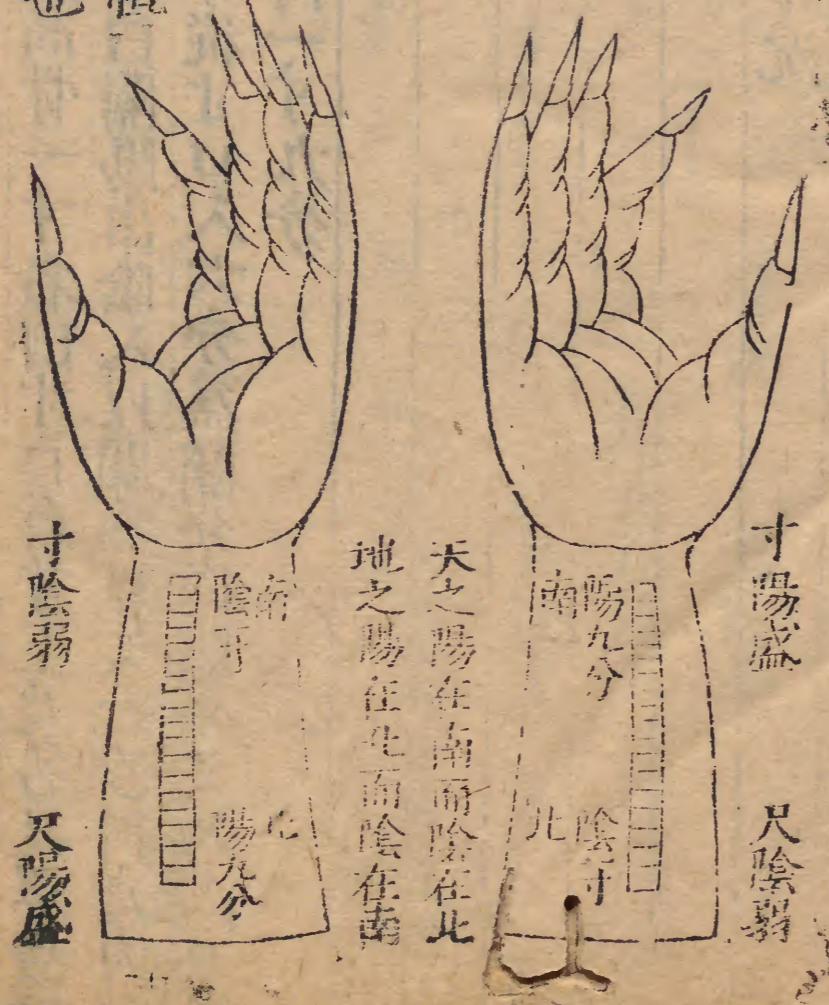 寸陽盛
尺陰弱
陽九分
南
陰寸
北
天之陽在南而陰在北
地之陽在北而陰在南
南
陰寸
北
陽九分
寸陰弱
尺陽盛
也